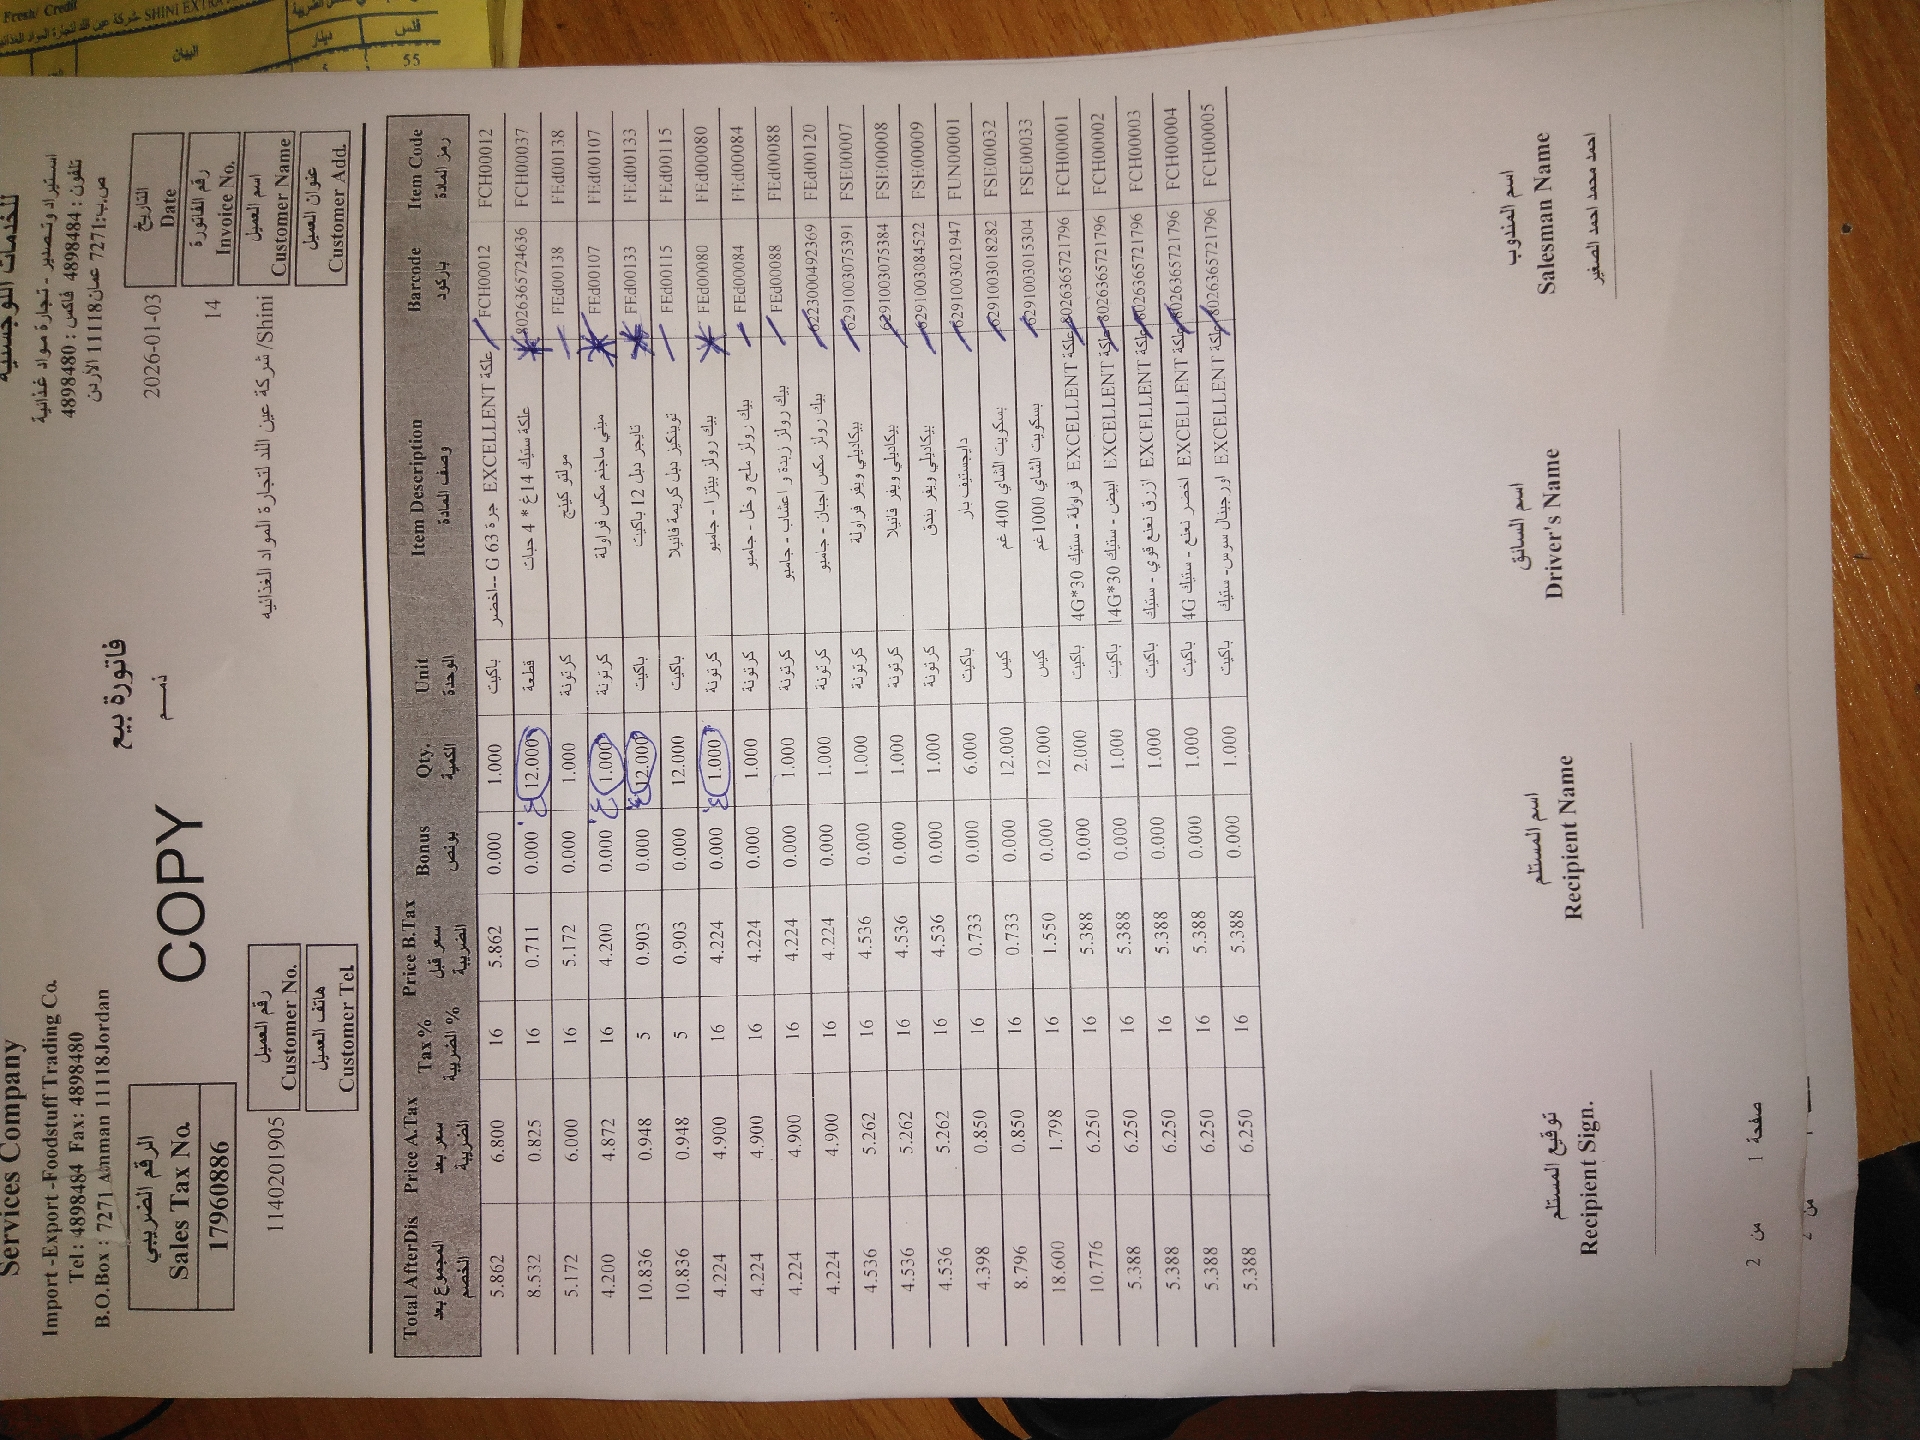 للخدمات اللوجستية
استيراد وتصدير - تجارة مواد غذائية
تلفون : 4898484 فاكس : 4898480
ص.ب:7271 عمان11118 الأردن
Services Company
Import -Export -Foodstuff Trading Co.
Tel : 4898484 Fax: 4898480
B.O.Box : 7271 Amman 11118 Jordan
الرقم الضريبي
Sales Tax No.
17960886
فاتورة بيع
ذمم
COPY
التاريخ
Date
2026-01-03
رقم الفاتورة
Invoice No.
14
اسم العميل
Customer Name
شركة عين اللد لتجارة المواد الغذائيه /Shini
عنوان العميل
Customer Add.
رقم العميل
Customer No.
1140201905
هاتف العميل
Customer Tel.
Total AfterDis Price A.Tax Tax % Price B.Tax Bonus Qty. Unit Item Description Barcode Item Code
المجموع بعد الخصم سعر بعد الضريبة الضريبة % سعر قبل الضريبة بونص الكمية الوحدة وصف المادة باركود رمز المادة
5.862 6.800 16 5.862 0.000 1.000 باكيت علكة EXCELLENT جرة G 63 --اخضر FCH00012 FCH00012
8.532 0.825 16 0.711 0.000 12.000 قطعة علكة ستيك 14غ * 4 حبات 8026365724636 FCH00037
5.172 6.000 16 5.172 0.000 1.000 كرتونة مولتو كينج FEd00138 FEd00138
4.200 4.872 16 4.200 0.000 1.000 كرتونة ميني ماجنم مكس فراولة FEd00107 FEd00107
10.836 0.948 5 0.903 0.000 12.000 باكيت تايجر دبل 12 باكيت FEd00133 FEd00133
10.836 0.948 5 0.903 0.000 12.000 باكيت توينكيز دبل كريمة فانيلا FEd00115 FEd00115
4.224 4.900 16 4.224 0.000 1.000 كرتونة بيك رولز بيتزا - جامبو FEd00080 FEd00080
4.224 4.900 16 4.224 0.000 1.000 كرتونة بيك رولز ملح و خل - جامبو FEd00084 FEd00084
4.224 4.900 16 4.224 0.000 1.000 كرتونة بيك رولز زبدة و اعشاب - جامبو FEd00088 FEd00088
4.224 4.900 16 4.224 0.000 1.000 كرتونة بيك رولز مكس اجبان - جامبو 6223000492369 FEd00120
4.536 5.262 16 4.536 0.000 1.000 كرتونة بيكاديلي ويفر فراولة 6291003075391 FSE00007
4.536 5.262 16 4.536 0.000 1.000 كرتونة بيكاديلي ويفر فانيلا 6291003075384 FSE00008
4.536 5.262 16 4.536 0.000 1.000 كرتونة بيكاديلي ويفر بندق 6291003084522 FSE00009
4.398 0.850 16 0.733 0.000 6.000 باكيت دايجستيف بار 6291003021947 FUN00001
8.796 0.850 16 0.733 0.000 12.000 كيس بسكويت الشاي 400 غم 6291003018282 FSE00032
18.600 1.798 16 1.550 0.000 12.000 كيس بسكويت الشاي 1000غم 6291003015304 FSE00033
10.776 6.250 16 5.388 0.000 2.000 باكيت علكة EXCELLENT فراولة - ستيك 4G*30 8026365721796 FCH00001
5.388 6.250 16 5.388 0.000 1.000 باكيت علكة EXCELLENT ابيض - ستيك 14G*30 8026365721796 FCH00002
5.388 6.250 16 5.388 0.000 1.000 باكيت علكة EXCELLENT ازرق نعنع قوي - ستيك 8026365721796 FCH00003
5.388 6.250 16 5.388 0.000 1.000 باكيت علكة EXCELLENT اخضر نعنع - ستيك 4G 8026365721796 FCH00004
5.388 6.250 16 5.388 0.000 1.000 باكيت علكة EXCELLENT اورجينال سوس- ستيك 8026365721796 FCH00005
توقيع المستلم
Recipient Sign.
اسم المستلم
Recipient Name
اسم السائق
Driver's Name
اسم المندوب
Salesman Name
احمد محمد احمد الصغير
صفحة 1 من 2
Fresh/ Credit
البيان
دينار
فلس
55